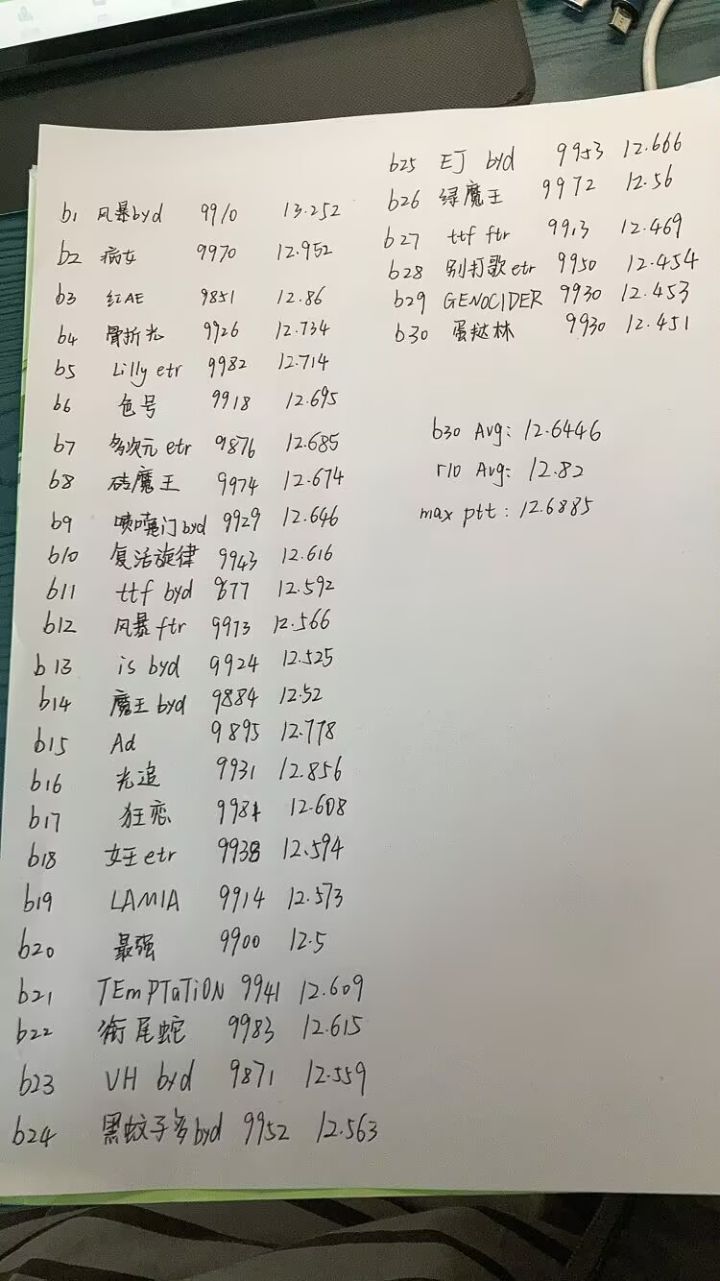 b1 风暴byd 9910 13.252
b2 病女 9970 12.952
b3 红AE 9851 12.86
b4 骨折光 9926 12.734
b5 Lilly etr 9982 12.714
b6 色号 9918 12.695
b7 多次元 etr 9876 12.685
b8 砖魔王 9974 12.674
b9 喷嚏门byd 9929 12.646
b10 复活旋律 9943 12.616
b11 ttf byd 9877 12.592
b12 风暴ftr 9973 12.566
b13 is byd 9924 12.525
b14 魔王byd 9884 12.52
b15 Ad 9895 12.778
b16 光追 9931 12.856
b17 狂恋 9981 12.608
b18 女王etr 9938 12.594
b19 LAMIA 9914 12.573
b20 最强 9900 12.5
b21 TEmPTaTiON 9941 12.609
b22 衔尾蛇 9983 12.615
b23 VH byd 9871 12.559
b24 黑蚊子多byd 9952 12.563
b25 EJ byd 9953 12.666
b26 绿魔王 9972 12.56
b27 ttf ftr 9913 12.469
b28 别打歌etr 9950 12.454
b29 GENOCIDER 9930 12.453
b30 蛋挞林 9930 12.451
b30 Avg: 12.6446
r10 Avg: 12.82
max ptt: 12.6885